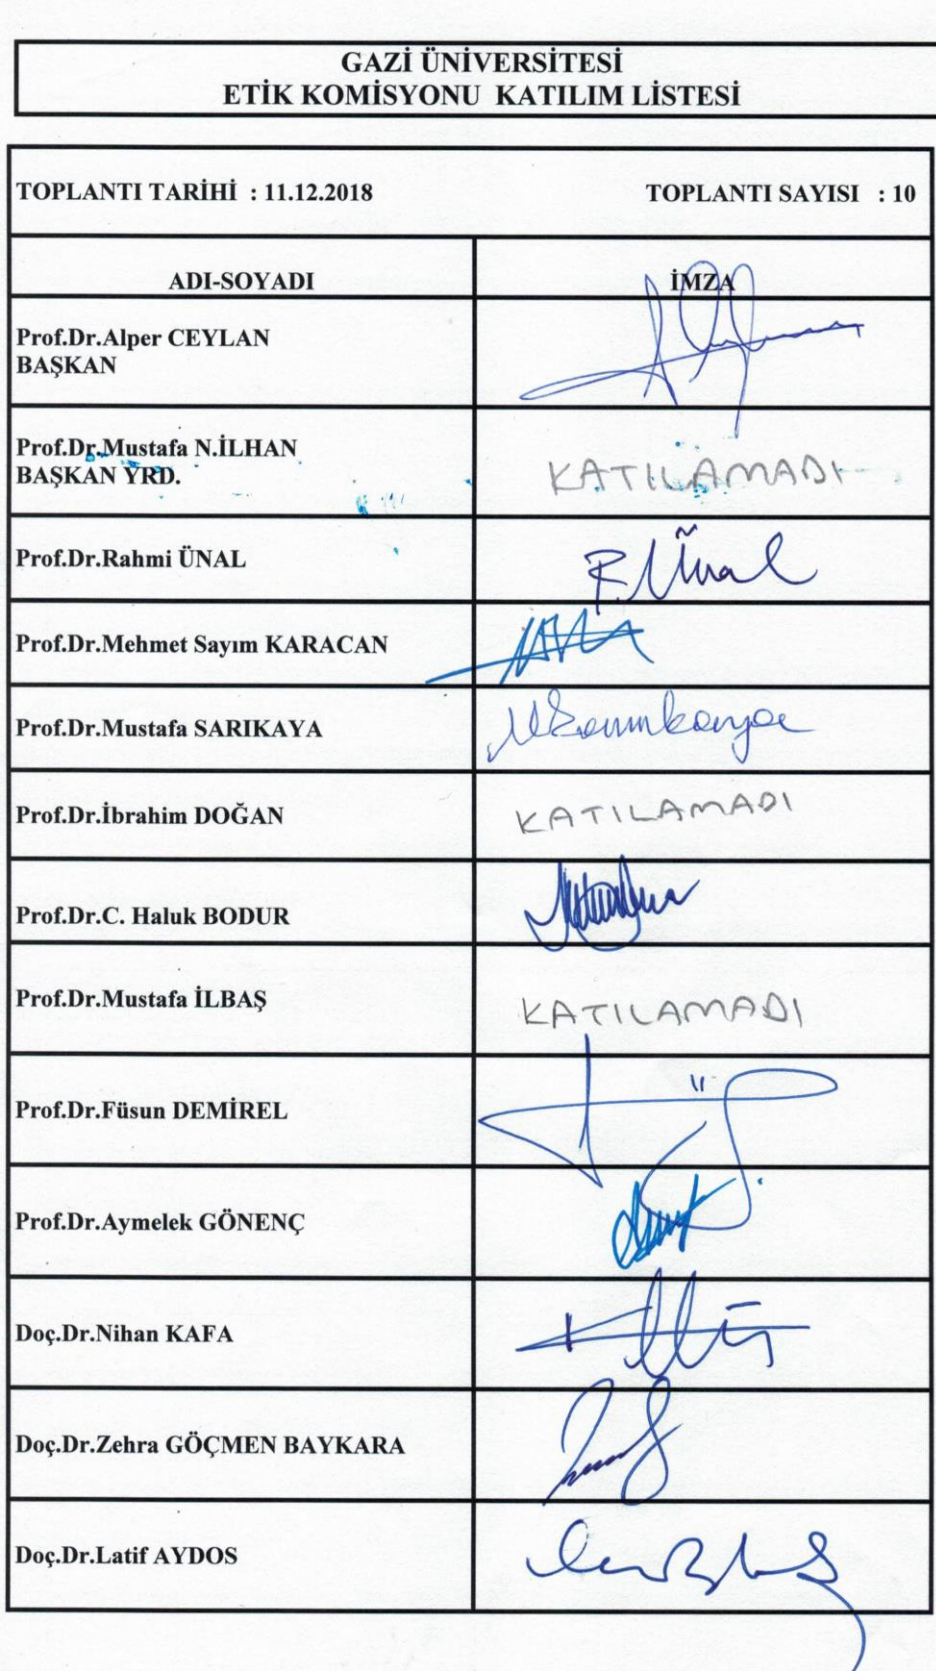 GAZİ ÜNİVERSİTESİ
ETİK KOMİSYONU KATILIM LİSTESİ
TOPLANTI TARİHİ : 11.12.2018 TOPLANTI SAYISI : 10
ADI-SOYADI İMZA
Prof.Dr.Alper CEYLAN
BAŞKAN
Prof.Dr.Mustafa N.İLHAN
BAŞKAN YRD. KATILAMADI
Prof.Dr.Rahmi ÜNAL R.Ünal
Prof.Dr.Mehmet Sayım KARACAN
Prof.Dr.Mustafa SARIKAYA MSarıkaya
Prof.Dr.İbrahim DOĞAN KATILAMADI
Prof.Dr.C. Haluk BODUR
Prof.Dr.Mustafa İLBAŞ KATILAMADI
Prof.Dr.Füsun DEMİREL
Prof.Dr.Aymelek GÖNENÇ
Doç.Dr.Nihan KAFA
Doç.Dr.Zehra GÖÇMEN BAYKARA
Doç.Dr.Latif AYDOS